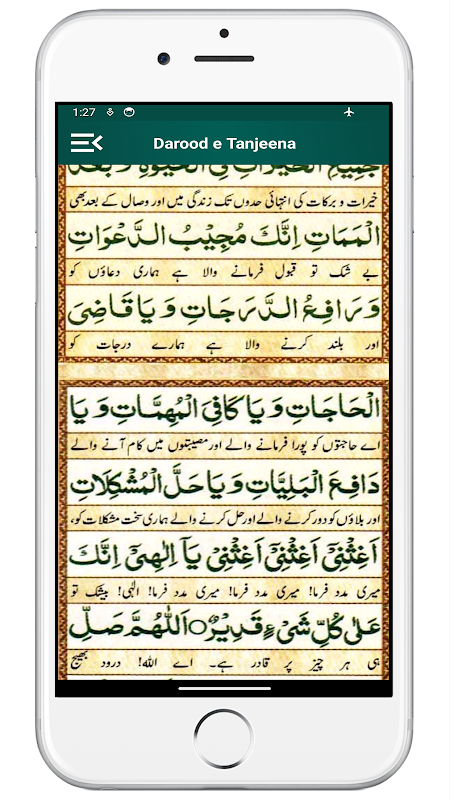 1:27
Darood e Tanjeena
جَمِيْعِ الْخَيْرَاتِ فِي الْحَيٰوةِ وَ بَعْدَ
خیرات و برکات کی انتہائی حدوں تک زندگی میں اور وصال کے بعد بھی
الْمَمَاتِ اِنَّكَ مُجِيْبُ الدَّعْوَاتِ
بے شک تو قبول فرمانے والا ہے ہماری دعاؤں کو
وَ رَافِعُ الدَّرَجَاتِ وَ يَا قَاضِيَ
اور بلند کرنے والا ہے ہمارے درجات کو
الْحَاجَاتِ وَ يَا كَافِيَ الْمُهِمَّاتِ وَ يَا
اے حاجتوں کو پورا فرمانے والے اور مصیبتوں میں کام آنے والے
دَافِعَ الْبَلِيَّاتِ وَ يَا حَلَّ الْمُشْكِلَاتِ
اور بلاؤں کو دور کرنے والے اور حل کرنے والے ہماری سخت مشکلات کو،
اَغِثْنِيْ اَغِثْنِيْ اَغِثْنِيْ يَآ اِلٰهِيْ اِنَّكَ
میری مدد فرما! میری مدد فرما! میری مدد فرما! الٰہی! بیشک تو
عَلٰى كُلِّ شَيْءٍ قَدِيْرٌ○ اَللّٰهُمَّ صَلِّ
ہی ہر چیز پر قادر ہے۔ اے اللہ! درود بھیج